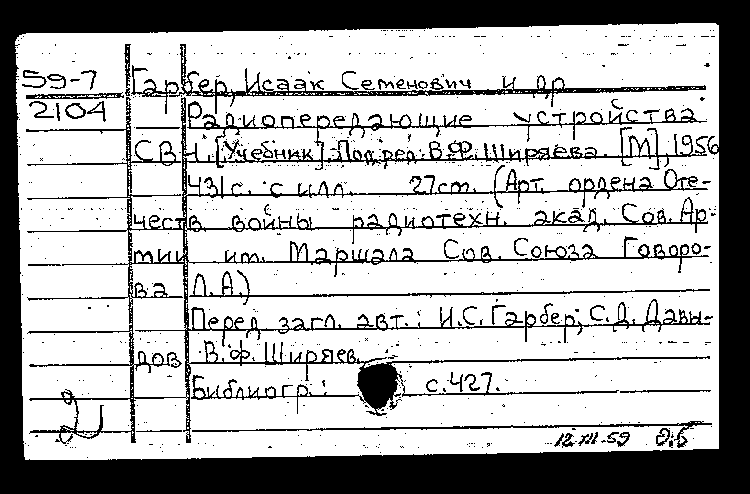 59-7 Гарбер, Исаак Семенович и др
2104 Радиопередающие устройства
СВЧ. [Учебник]. Под ред. В.Ф. Ширяева. [М], 1956
431 с. с илл. 27 cm. (Арт. ордена Оте-
честв войны радиотехн. акад. Сов. Ар-
тии им. Маршала Сов. Союза Говоро-
ва Л.А.)
Перед загл. авт.: И.С. Гарбер, С.Д. Давы-
дов В.Ф. Ширяев.
Библиогр.: с. 427.
2
12.XII-59